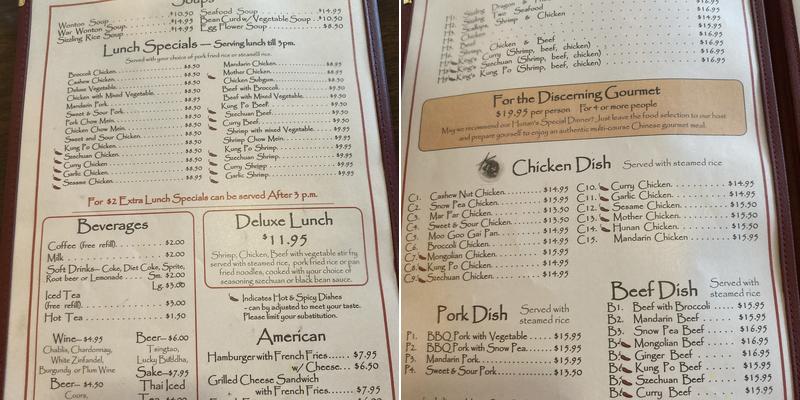 Soups
Wonton Soup $10.50
War Wonton Soup $14.95
Sizzling Rice Soup $14.95
Seafood Soup $14.95
Bean Curd w/ Vegetable Soup $10.50
Egg Flower Soup $8.50
Lunch Specials — Serving lunch till 3pm.
Served with your choice of pork fried rice or steamed rice.
Broccoli Chicken $8.50
Cashew Chicken $8.50
Deluxe Vegetable $8.50
Chicken with Mixed Vegetable $8.50
Mandarin Pork $8.95
Sweet & Sour Pork $8.50
Pork Chow Mein $8.50
Chicken Chow Mein $8.50
Sweet and Sour Chicken $8.50
Kung Pao Chicken $8.50
Szechuan Chicken $8.50
Curry Chicken $8.50
Garlic Chicken $8.50
Sesame Chicken $8.95
Mandarin Chicken $8.95
Mother Chicken $8.95
Chicken Subgum $8.50
Beef with Broccoli $9.50
Beef with Mixed Vegetable $9.50
Kung Po Beef $9.50
Szechuan Beef $9.50
Curry Beef $9.50
Shrimp with mixed Vegetable $9.95
Shrimp Chow Mein $9.95
Kung Po Shrimp $9.95
Szechuan Shrimp $9.95
Curry Shrimp $9.95
Garlic Shrimp $9.95
For $2 Extra Lunch Specials can be served After 3 p.m.
Beverages
Coffee (free refill) $2.00
Milk $2.00
Soft Drinks— Coke, Diet Coke, Sprite,
Root beer or Lemonade Sm. $2.00
Lg. $3.00
Iced Tea
(free refill) $3.00
Hot Tea $1.50
Wine—$4.95
Chablis, Chardonnay,
White Zinfandel,
Burgundy or Plum Wine
Beer—$4.50
Coors,
Beer—$6.00
Tsingtao,
Lucky Buddha,
Sake—$7.95
Thai Iced
Tea $4.00
Deluxe Lunch
$11.95
Shrimp, Chicken, Beef with vegetable stir fry
served with steamed rice, pork fried rice or pan
fried noodles, cooked with your choice of
seasoning szechuan or black bean sauce.
Indicates Hot & Spicy Dishes
- can by adjusted to meet your taste.
Please limit your substitution.
American
Hamburger with French Fries $7.95
w/ Cheese $6.50
Grilled Cheese Sandwich
with French Fries $7.95
Sizzling Dragon &
Sizzling Two Seafood
Scallops, Shrimp & Chicken
Chicken
Shrimp, Chicken & Beef $16.95
King's Curry (Shrimp, beef, chicken) $16.95
King's Szechuan (Shrimp, beef, chicken) $16.95
King's Kung Po (Shrimp, beef, chicken) $16.95
For the Discerning Gourmet
$19.95 per person For 4 or more people
May we recommend our Hunan's Special Dinner? Just leave the food selection to our host
and prepare yourself to enjoy an authentic multi-course Chinese gourmet meal.
Chicken Dish Served with steamed rice
C1. Cashew Nut Chicken $14.95
C2. Snow Pea Chicken $15.95
C3. Mar Far Chicken $13.50
C4. Sweet & Sour Chicken $13.50
C5. Moo Goo Gai Pan $14.95
C6. Broccoli Chicken $14.95
C7. Mongolian Chicken $15.95
C8. Kung Po Chicken $14.95
C9. Szechuan Chicken $14.95
C10. Curry Chicken $14.95
C11. Garlic Chicken $14.95
C12. Sesame Chicken $15.50
C13. Mother Chicken $15.50
C14. Hunan Chicken $15.50
C15. Mandarin Chicken $15.95
Pork Dish Served with
steamed rice
P1. BBQ Pork with Vegetable $15.95
P2. BBQ Pork with Snow Pea $15.95
P3. Mandarin Pork $15.95
P4. Sweet & Sour Pork $13.50
Beef Dish Served with
steamed rice
B1. Beef with Broccoli $15.95
B2. Mandarin Beef $15.95
B3. Snow Pea Beef $16.95
B4. Mongolian Beef $16.95
B5. Ginger Beef $16.95
B6. Kung Po Beef $15.95
Szechuan Beef $15.95
Curry Beef $15.95